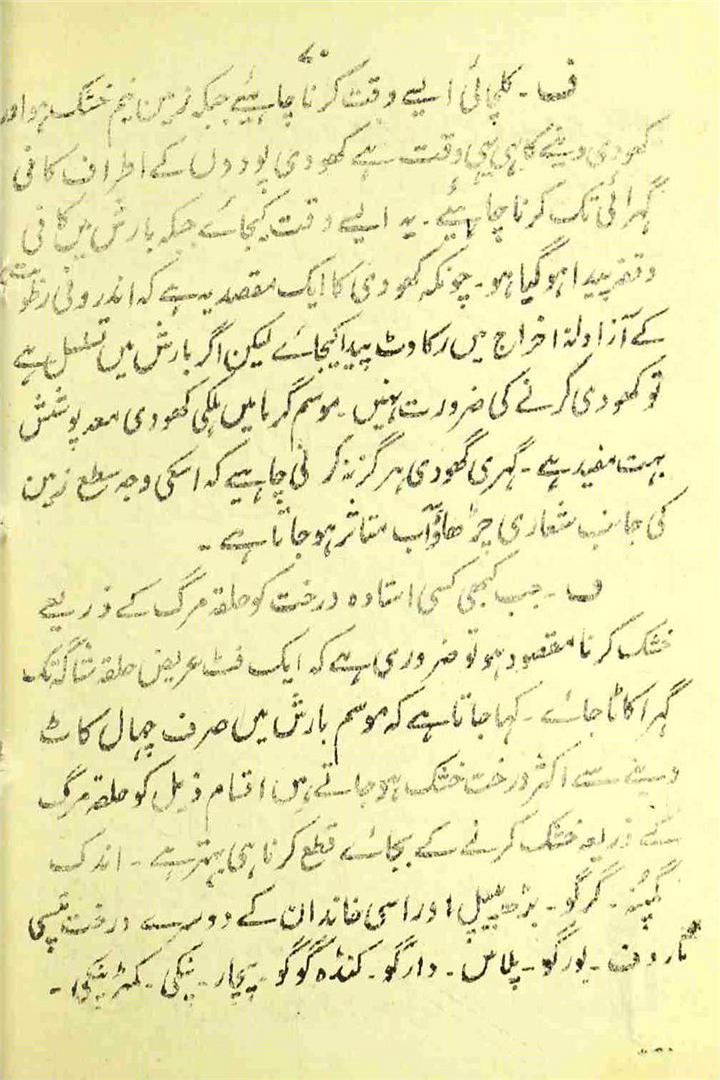 ۷۰
ف ۔ کلچائی ایسے وقت کرنا چاہئیے جبکہ زمین نیم خشک ہو اور
کھودی دینے کا ہی یہی وقت ہے کھودی پودوں کے اطراف کافی
گہرائی تک کرنا چاہئیے ۔ یہ ایسے وقت کیجائے جبکہ بارش میں کافی
وقفہ پیدا ہوگیا ہو ۔ چونکہ کھودی کا ایک مقصد یہ ہے کہ اندرونی رطوبت
کے آزادانہ اخراج میں رکاوٹ پیدا کیجائے لیکن اگر بارش میں تسلسل ہے
تو کھودی کرنے کی ضرورت نہیں ۔ موسم گرما میں ہلکی کھودی معہ پوشش
بہت مفید ہے ۔ گہری گھودی ہرگز نہ کرنی چاہیے کہ اسکی وجہ سطع زمین
کی جانب شعاری چڑھاؤ آب متاثر ہوجاتا ہے ۔
ف ۔ جب کبھی کسی استادہ درخت کو حلقہ مرگ کے ذریعے
خشک کرنا مقصود ہو تو ضروری ہے کہ ایک فٹ عریض حلقہ تک
گہرا کاٹا جائے ۔ کہا جاتا ہے کہ موسم بارش میں صرف چھال کاٹ
دینے سے اکثر درخت خشک ہوجاتے ہیں اقسام ذیل کو حلقہ مرگ
کے ذریعہ خشک کرنے کے بجائے قطع کرنا ہی بہتر ہے ۔ اندک
گمپنہ ۔ گرگو ۔ بڑھ پیپل اور اسی خاندان کے دوسرے درخت
ناروف ۔ بورگو ۔ پلاس ۔ دارگو ۔ کنڈہ گوگو ۔ پچار ۔ پنکی ۔